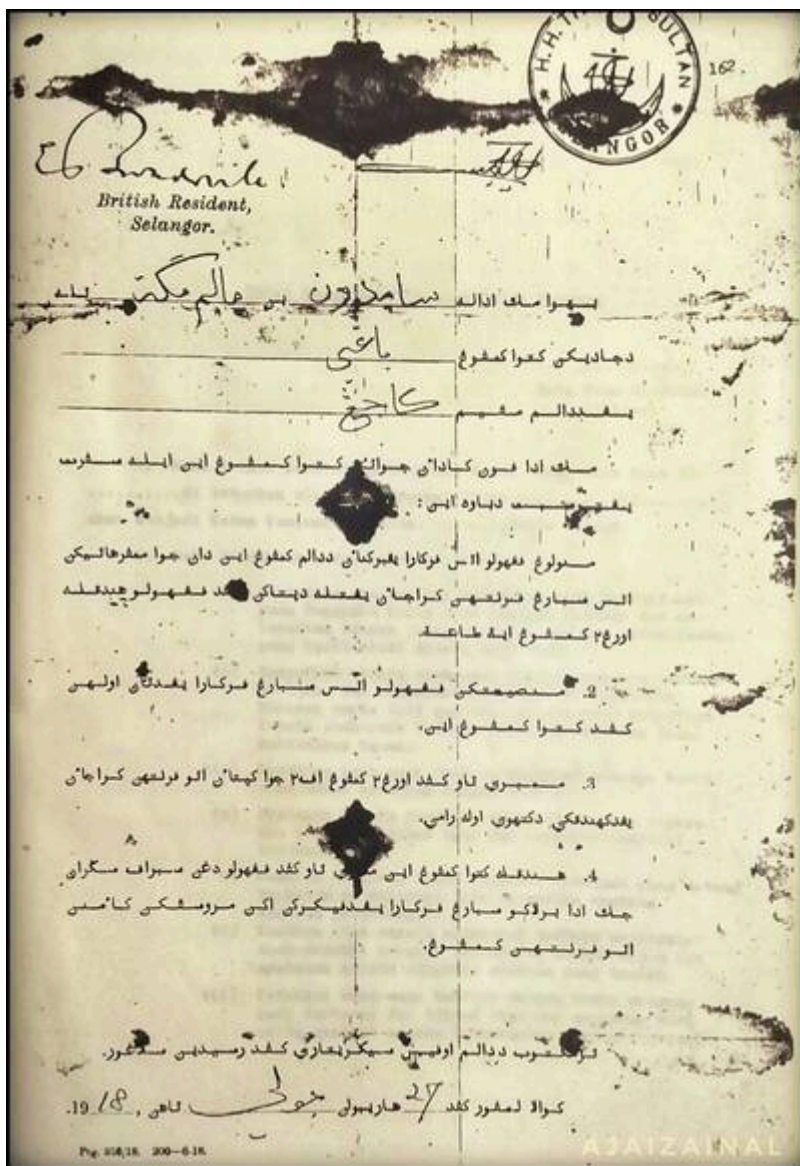 H.H. THE SULTAN
SELANGOR
162.
British Resident,
Selangor.
بهوا مك اداله سامدون بن حاليم مڬت تله
دجاديكن كتوا كمڤوڠ باڠي
يڠددالم مقيم كاجڠ
مك ادا ڤون كادأن جواتن كتوا كمڤوڠ اين ايله سڤرت
يڠترسبت دباوه اين:
منولوڠ ڤڠهولو اتس ڤركارا يڠبركنأن ددالم كمڤوڠ اين دان جوا ممڤرهاتيكن
اتس سبارڠ ڤرنتهن كراجأن يڠتله دڽتاكن كڤد ڤڠهولو هندقله
اورڠ٢ كمڤوڠ ايت طاعة.
2. منصيحتكن ڤڠهولو اتس سبارڠ ڤركارا يڠدتاڽ اوليهن
كڤد كتوا كمڤوڠ اين.
3. ممبري تاو كڤد اورڠ٢ كمڤوڠ اڤ٢ جوا كڽتأن اتو ڤرنته كراجأن
يڠدكهندقكن دكتهوي اوله رامي.
4. هندقله كتوا كمڤوڠ اين ممبري تاو كڤد ڤڠهولو دڠن سبراڤ سڬران
جك ادا برلاكو سبارڠ ڤركارا يڠدفيكركن اكن مروسقكن كأمنن
اتو ڤرنتهن كمڤوڠ.
ترمكتوب ددالم اوفيس سيكريتاري كڤد رسيدين سلاڠور.
كوالا لمڤور كڤد 27 هاريبولن جولي تاهن 1918.
Pg. 316/18. 200—6-18.
AJAIZAINAL